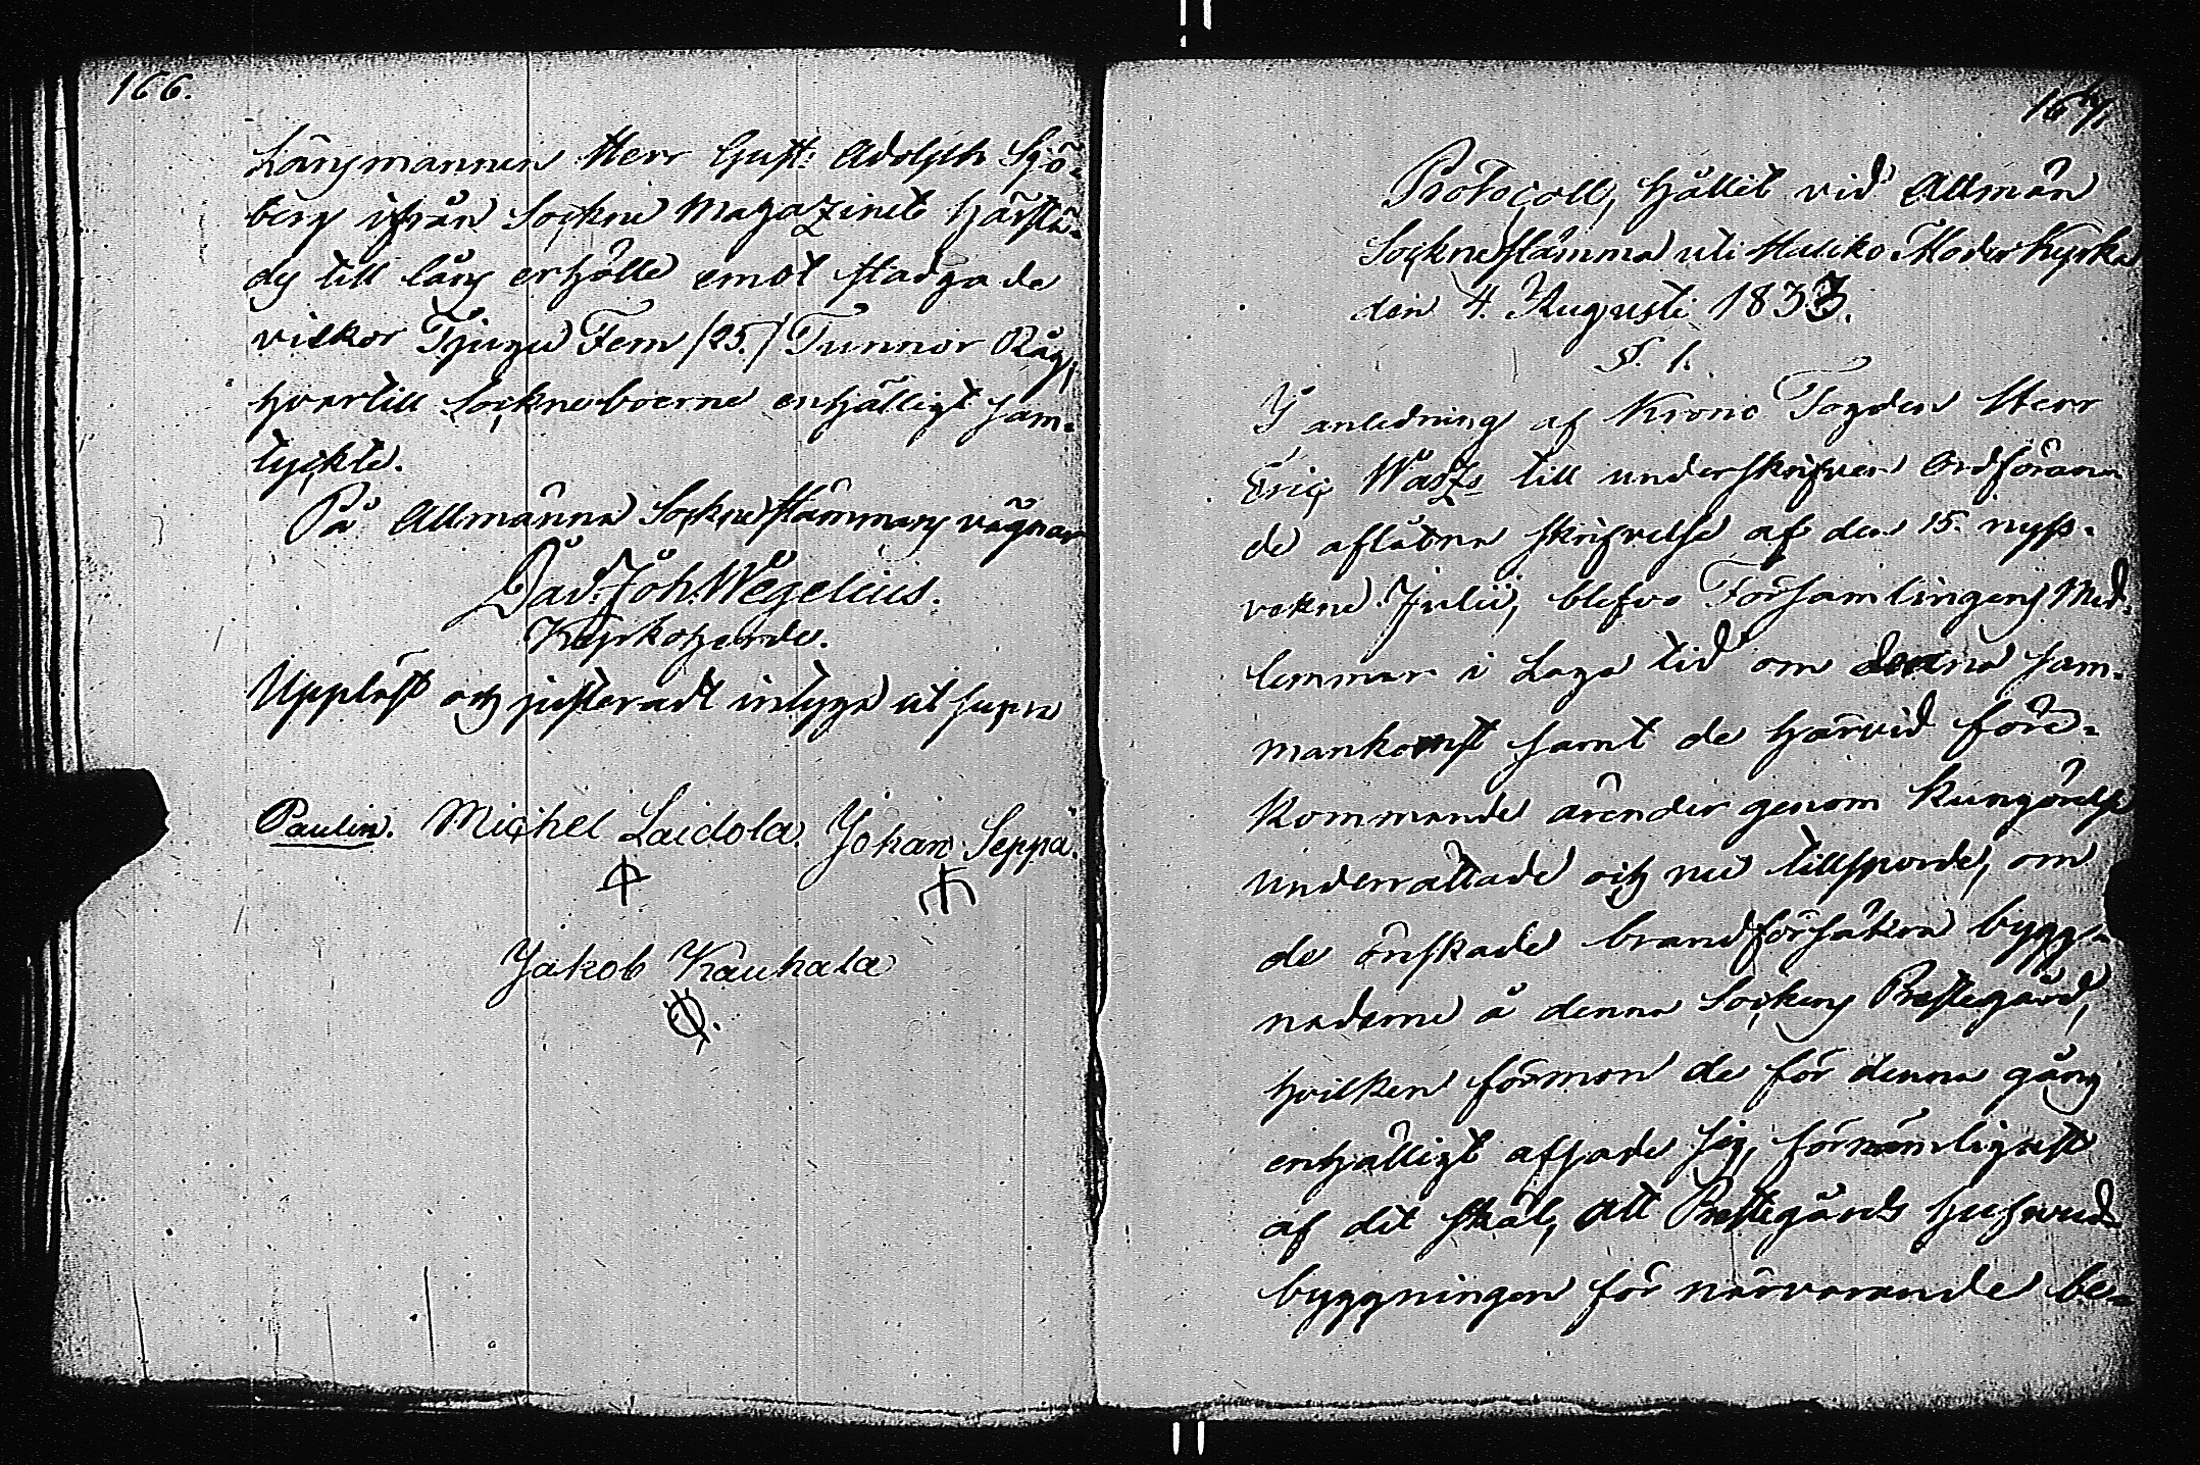 166.
Länsmannen Herr Gust: Adolph Sjö-
berg ifrån Sockne Magazinet härstä-
des till låns erhålla emot stadgade
vilkor Tjugu Fem /25./ Tunnor Råg,
hvartill Sockneboerne enhälligt sam-
tyckte.
På Allmänna Sockne Stämmans vägnar
Dav: Joh: Wegelius.
Kyrkoherde.
Uppläst och justeradt intyga ut supra
Paulin. Michel Laidola. Johan Seppä.
Jakob Kauhala
167.
Protocoll, hållit vid Allmän
Sockne Stämma uti Haliko Moder Kyrka
den 4. Augusti 1833.
S. 1.
I anledning af Krono Fogden Herr
Eric Wasz till underskrifven Ordföran-
de aflåtna skrifvelse af den 15. nyss-
vekne Julii, blefvo Församlingens Med-
lemmar i Laga tid om denna sam-
mankomst samt de härvid före-
kommande ärender genom Kungörelse
underrättade och nu tillsporde, om
de önskade brandförsäkra bygg-
naderne å denna Sockens Prestegård,
hvilken förmon de för denna gång
enhälligt afsade sig, förnämligast
af det skäl, att Prestegårds hufvud-
byggningen för närvarande be-